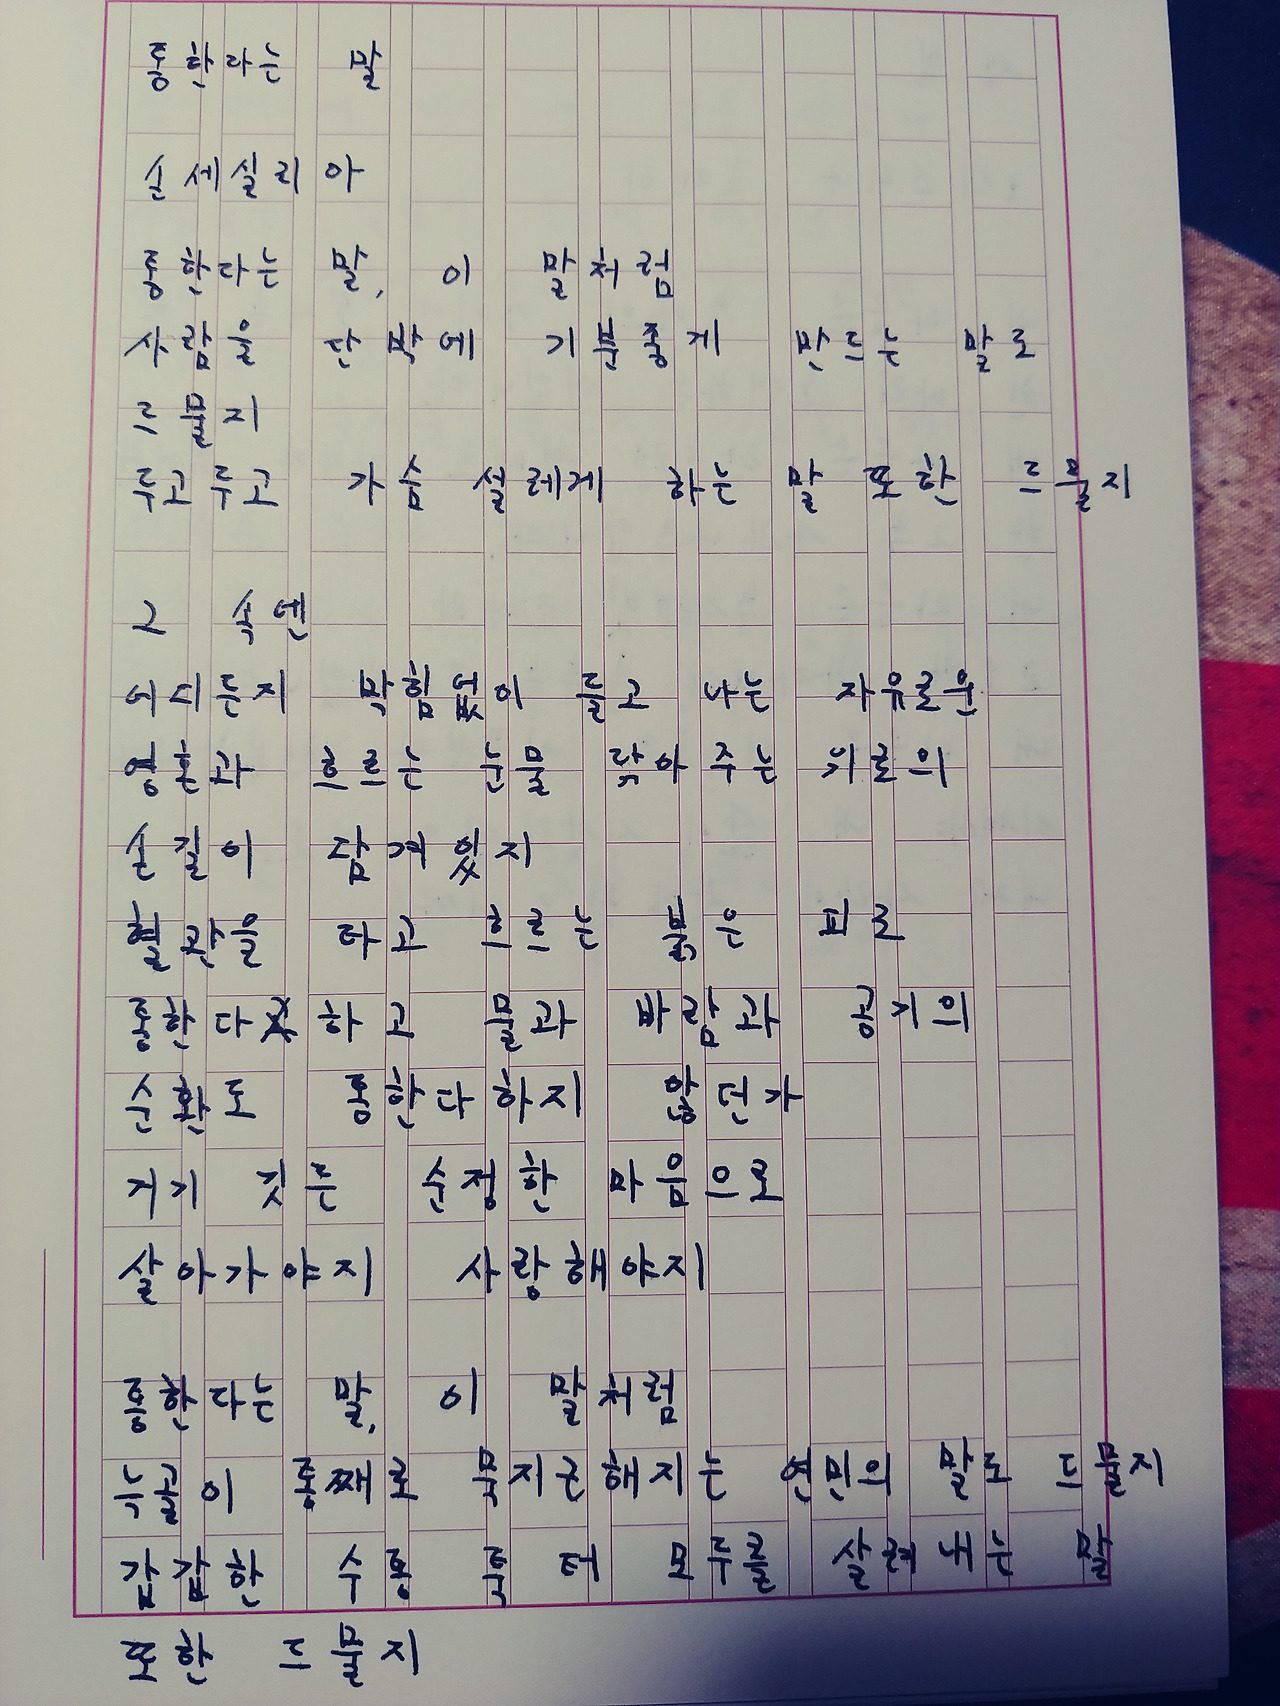 통한라는 말
손세실리아
통한다는 말, 이 말처럼
사람을 단박에 기분좋게 만드는 말로
드물지
두고두고 가슴 설레게 하는 말 또한 드물지
그 속엔
어디든지 막힘없이 들고 나는 자유로운
영혼과 흐르는 눈물 닦아 주는 위로의
손길이 담겨있지
혈관을 타고 흐르는 붉은 피로
통한다 하고 물과 바람과 공기의
순환도 통한다하지 않던가
거기 깃든 순정한 마음으로
살아가야지 사랑해야지
통한다는 말, 이 말처럼
늑골이 통째로 묵지근해지는 연민의 말도 드물지
갑갑한 숨통 툭 터 모두를 살려내는 말
또한 드물지